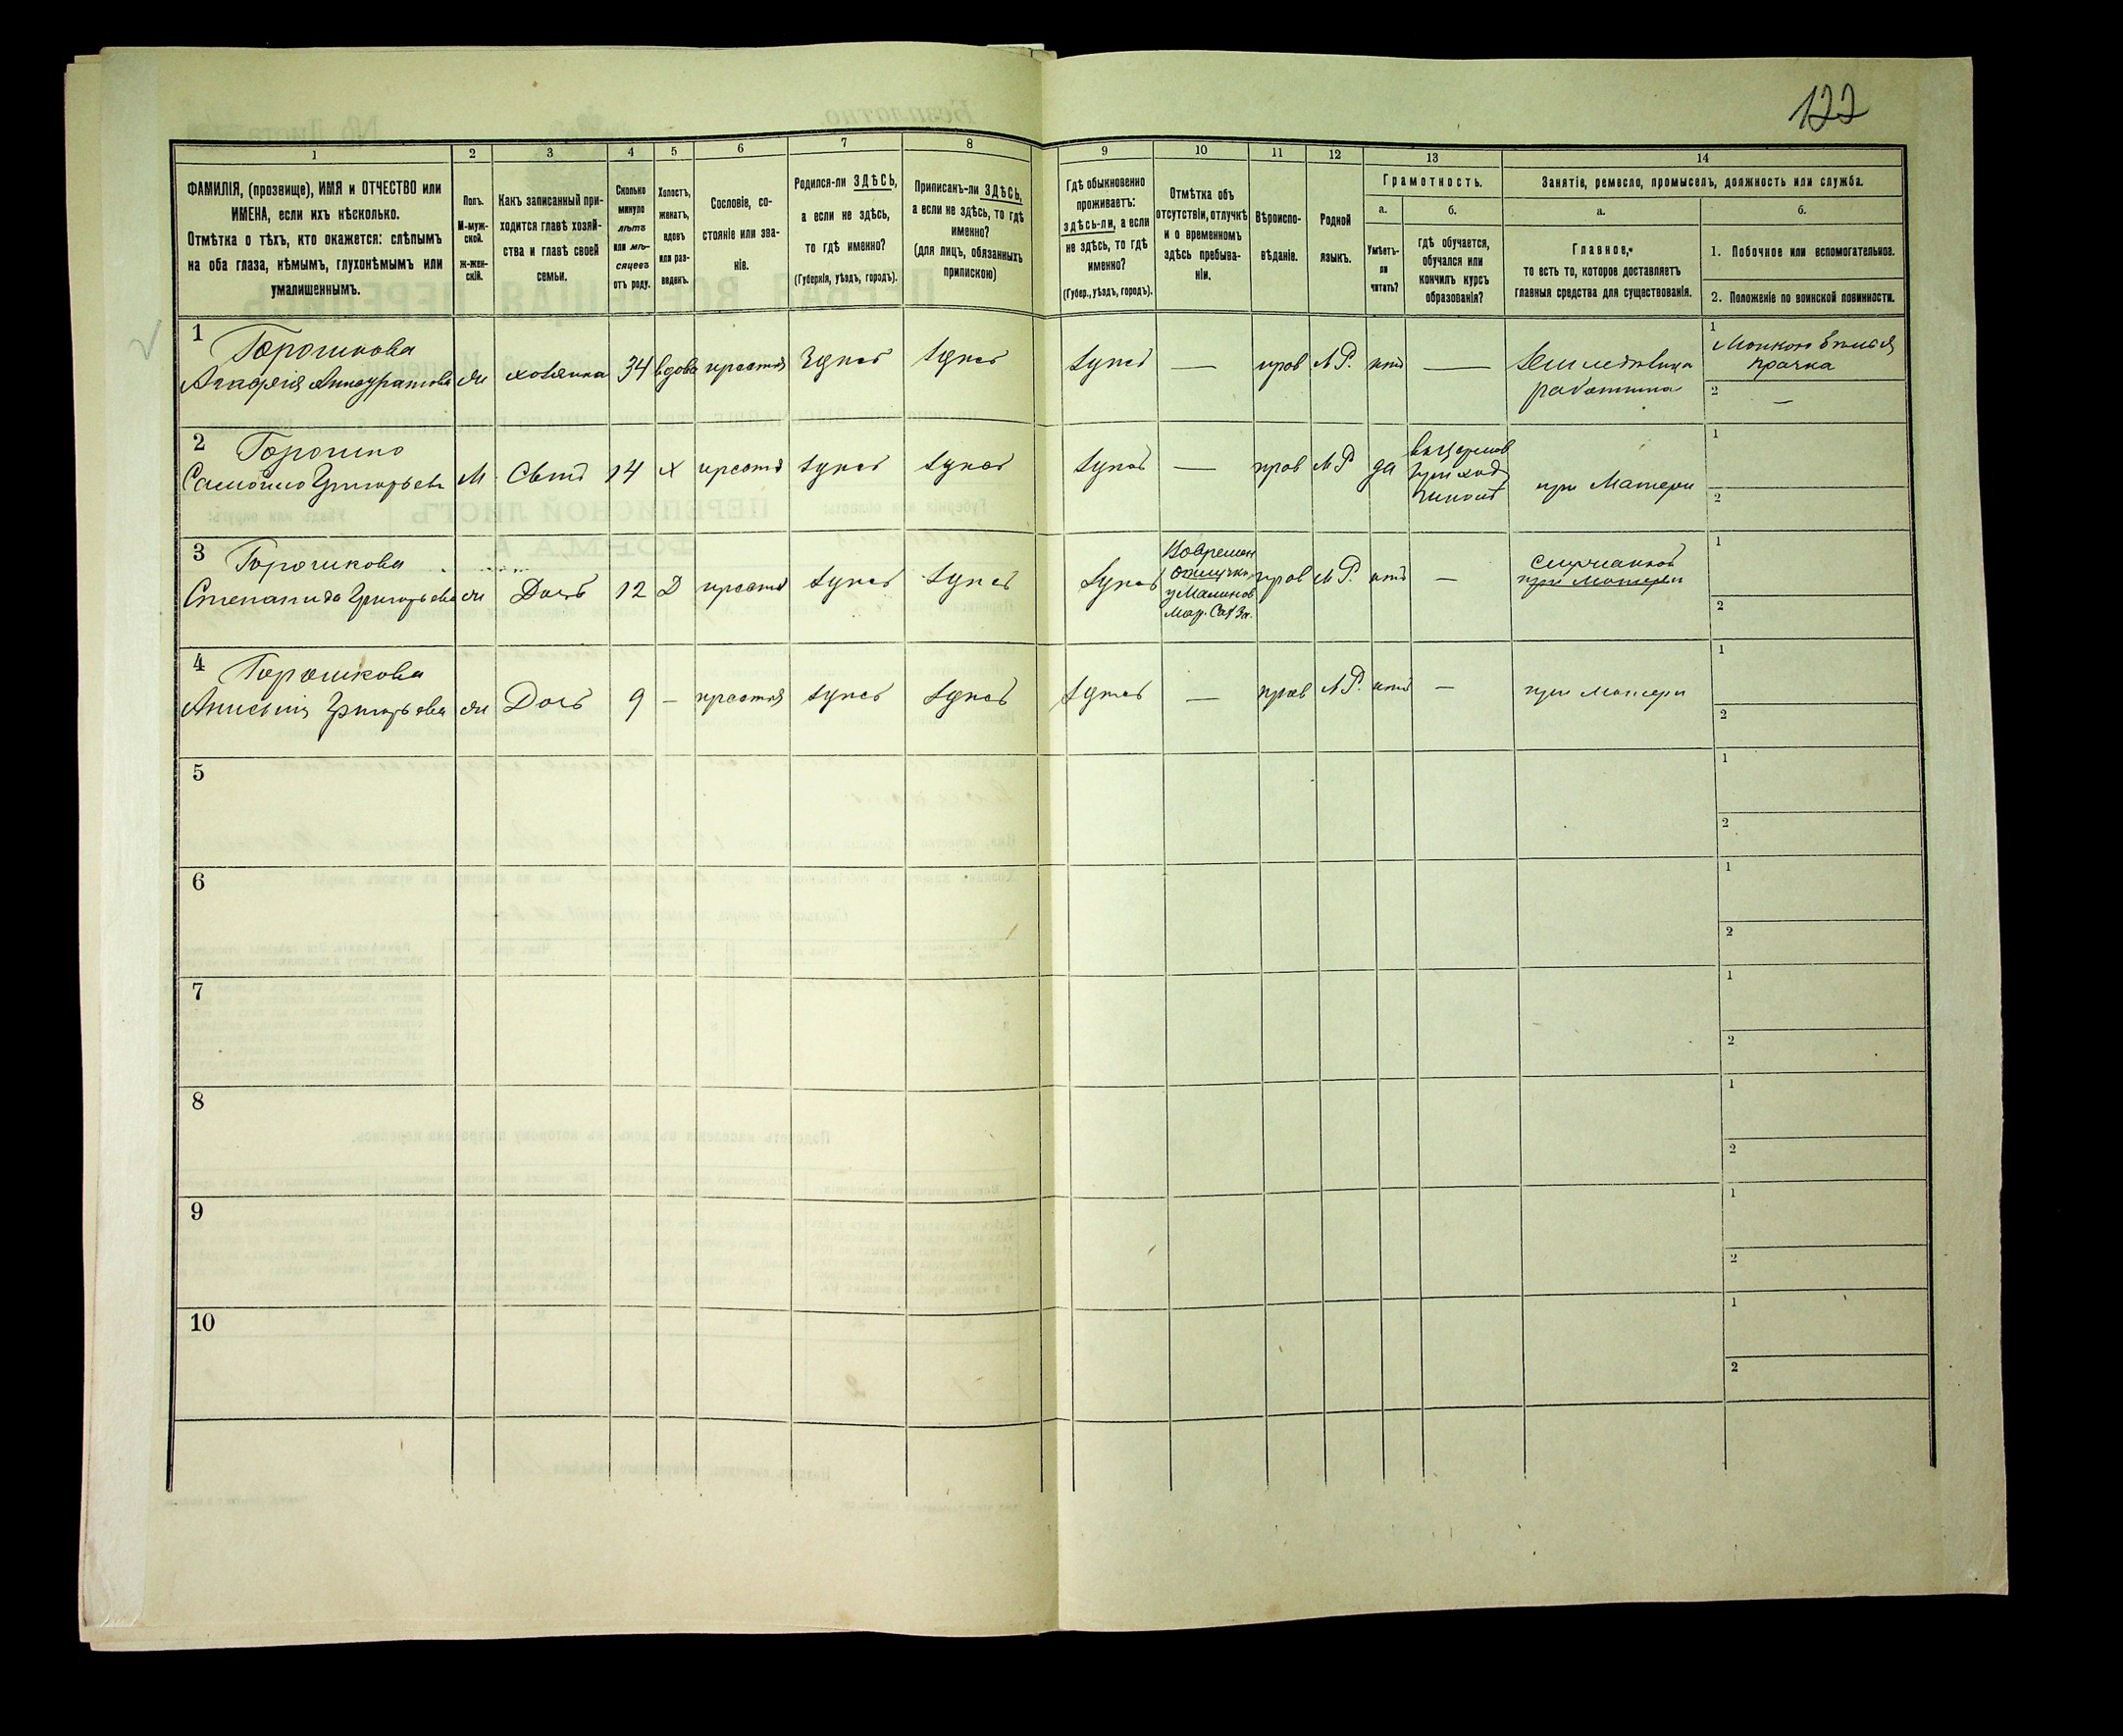 122
1
2
3
4
5
6
7
8
9
10
11
12
13
14
ФАМИЛІЯ, (прозвище), ИМЯ и ОТЧЕСТВО или
ИМЕНА, если ихъ нѣсколько.
Отмѣтка о тѣхъ, кто окажется: слѣпымъ
на оба глаза, нѣмымъ, глухонѣмымъ или
умалишеннымъ.
Полъ.
М-муж-
ской.
ж-жен-
скій.
Какъ записанный при-
ходится главѣ хозяй-
ства и главѣ своей
семьи.
Сколько
минуло
лѣтъ
или мѣ-
сяцевъ
отъ роду.
Холостъ,
женатъ,
вдовъ
или раз-
веденъ.
Сословіе, со-
стояніе или зва-
ніе.
Родился-ли ЗДѢСЬ,
а если не здѣсь,
то гдѣ именно?
(Губернія, уѣздъ, городъ).
Приписанъ-ли ЗДѢСЬ,
а если не здѣсь, то гдѣ
именно?
(для лицъ, обязанныхъ
припискою)
Гдѣ обыкновенно
проживаетъ:
здѣсь-ли, а если
не здѣсь, то гдѣ
именно?
(Губер., уѣздъ, городъ).
Отмѣтка объ
отсутствіи, отлучкѣ
и о временномъ
здѣсь пребыва-
ніи.
Вѣроиспо-
вѣданіе.
Родной
языкъ.
Грамотность.
а.
Умѣетъ-
ли
читать?
б.
гдѣ обучается,
обучался или
кончилъ курсъ
образованія?
Занятіе, ремесло, промыселъ, должность или служба.
а.
Главное,
то есть то, которое доставляетъ
главныя средства для существованія.
б.
1. Побочное или вспомогательное.
2. Положеніе по воинской повинности.
1
Горошкова
хозяйка
34
вдова
Здѣсь
Здѣсь
Здѣсь
—
прав
М.Р.
нѣтъ
—
работница
1
прачка
2
—
2
Горошко
Самойло Григорьевъ
М
Сынъ
14
Х
Здѣсь
Здѣсь
Здѣсь
—
прав
М.Р.
да
при Матери
1
2
3
Горошкова
Степанида Григорьева
Дочь
12
Д
Здѣсь
Здѣсь
Здѣсь
прав
М.Р.
нѣтъ
—
при Матери
1
2
4
Горошкова
Анисья Григорьева
Дочь
9
—
Здѣсь
Здѣсь
Здѣсь
—
прав
М.Р.
нѣтъ
—
при Матери
1
2
5
1
2
6
1
2
7
1
2
8
1
2
9
1
2
10
1
2